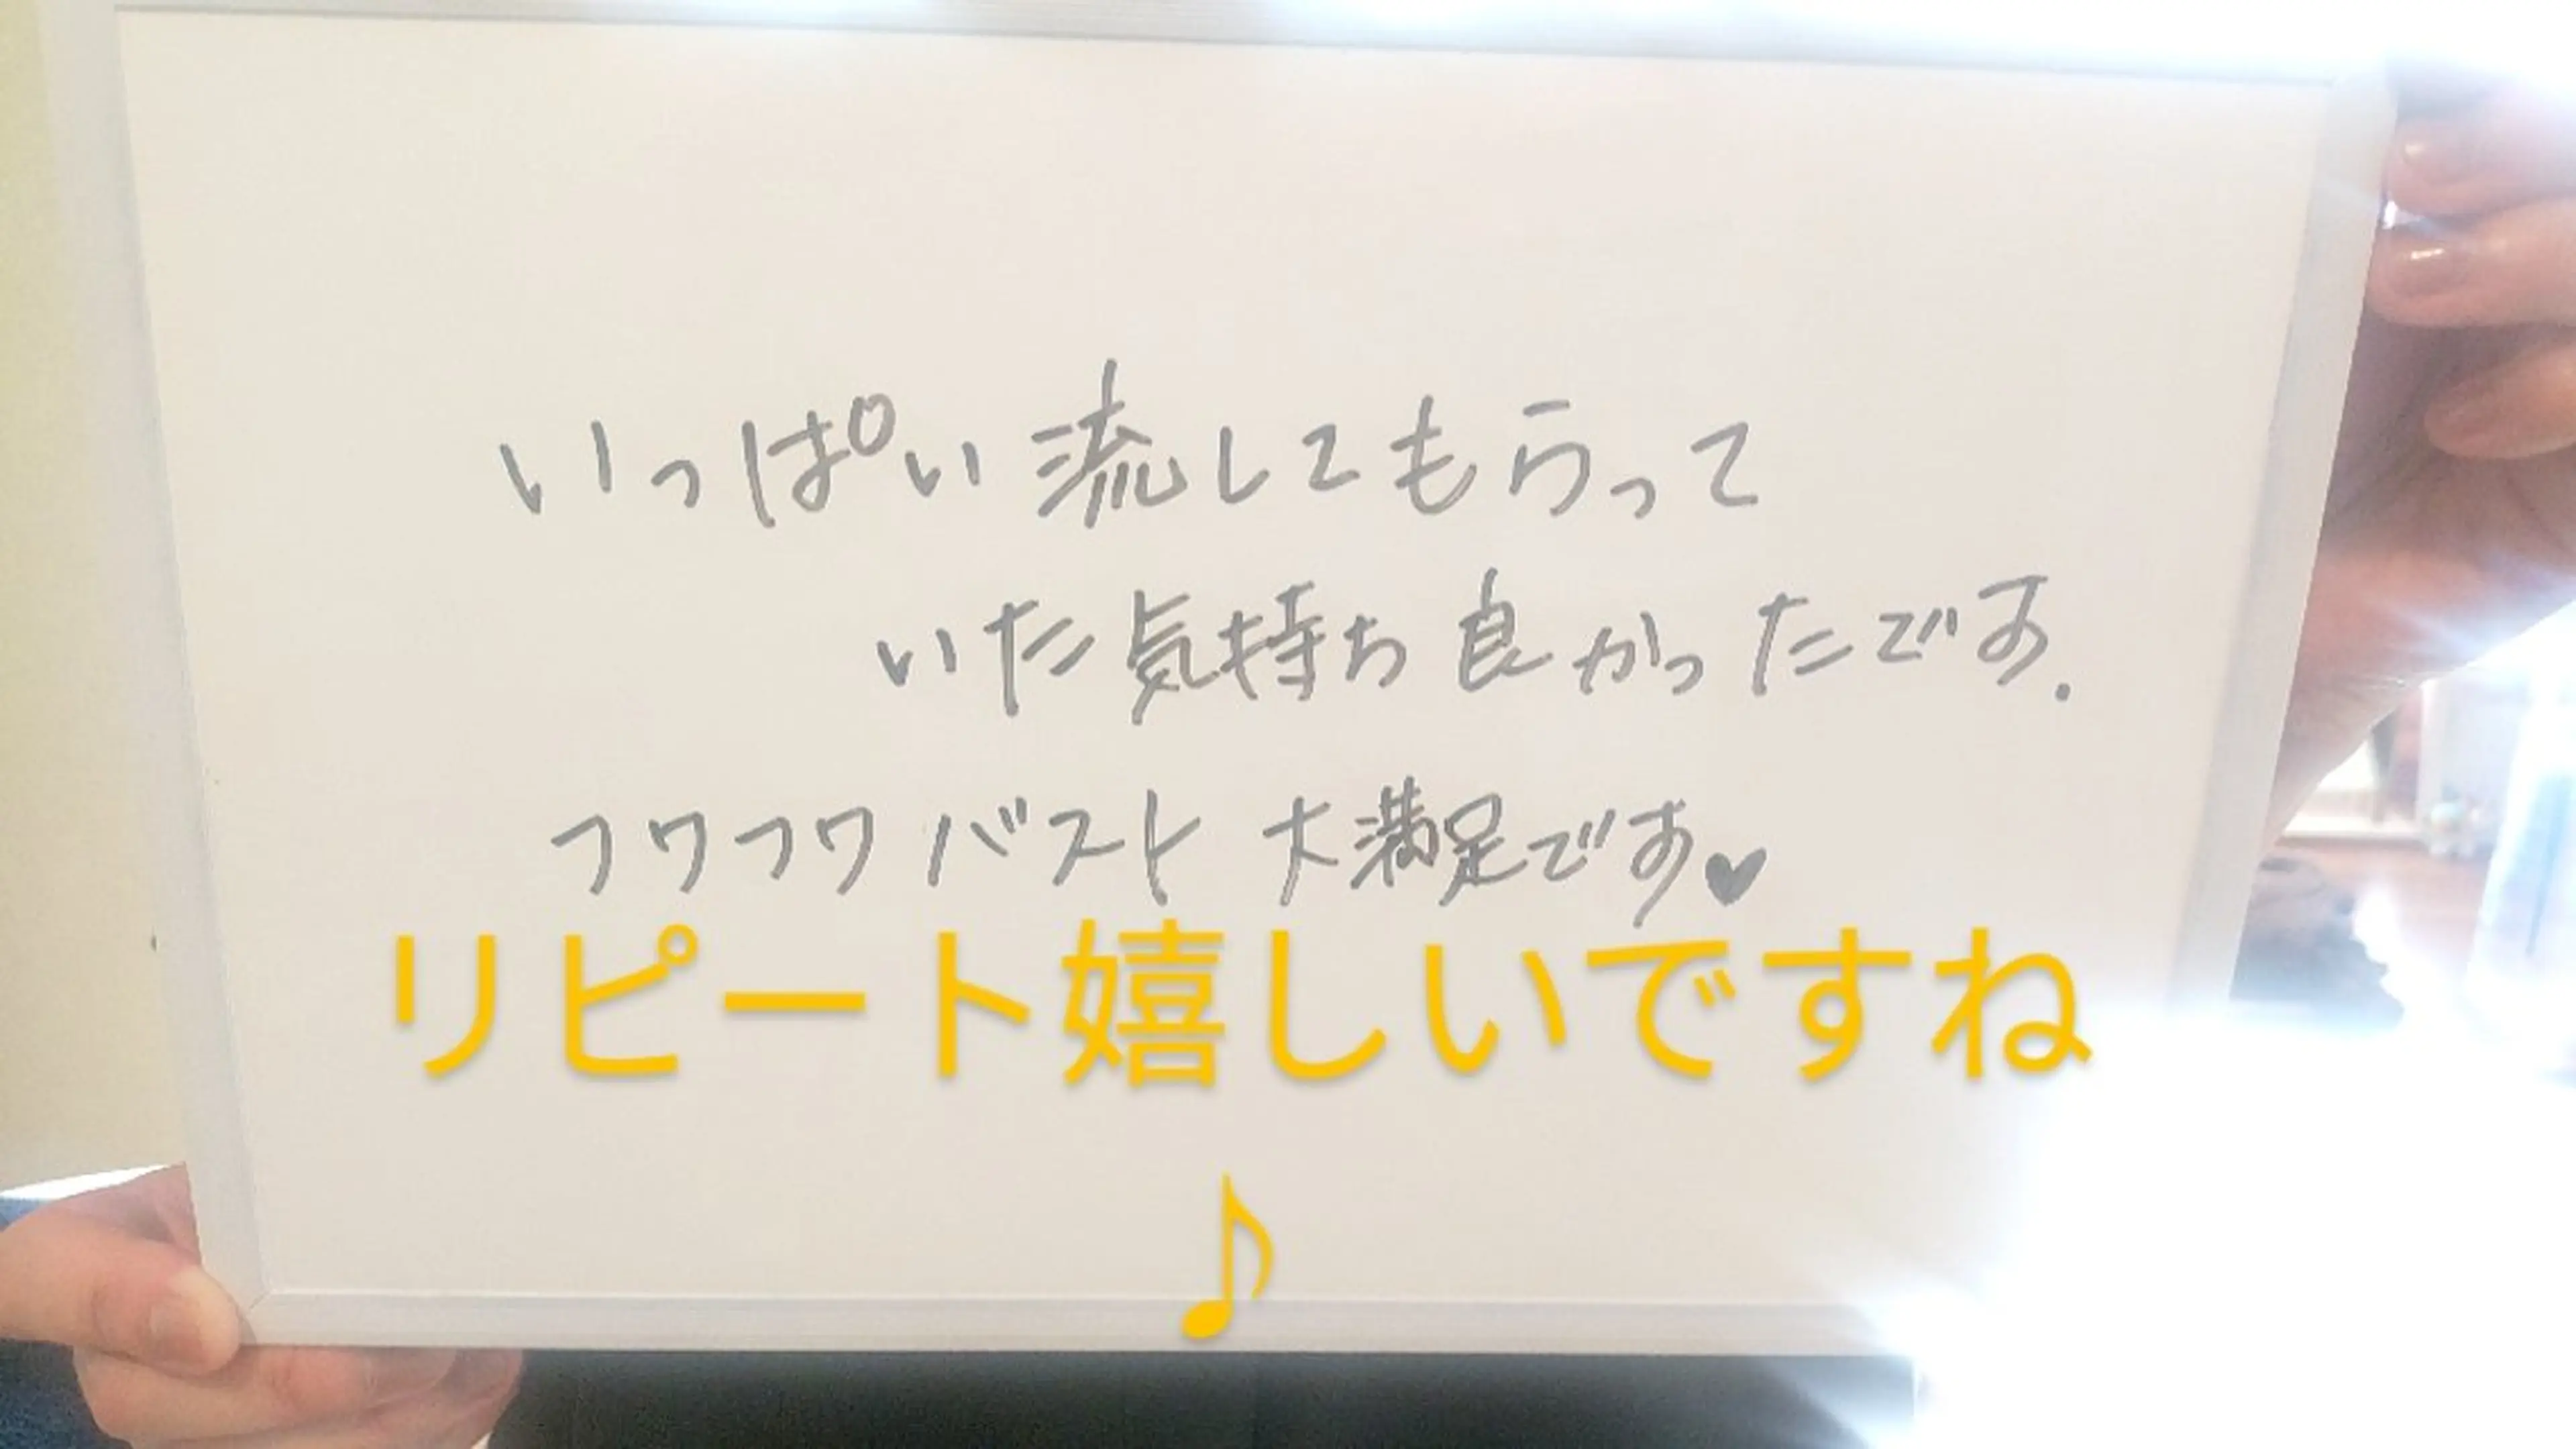 いっぱい流してもらって
いた気持ち良かったです.
フワフワバスト 大満足です♥
リピート嬉しいですね
♪